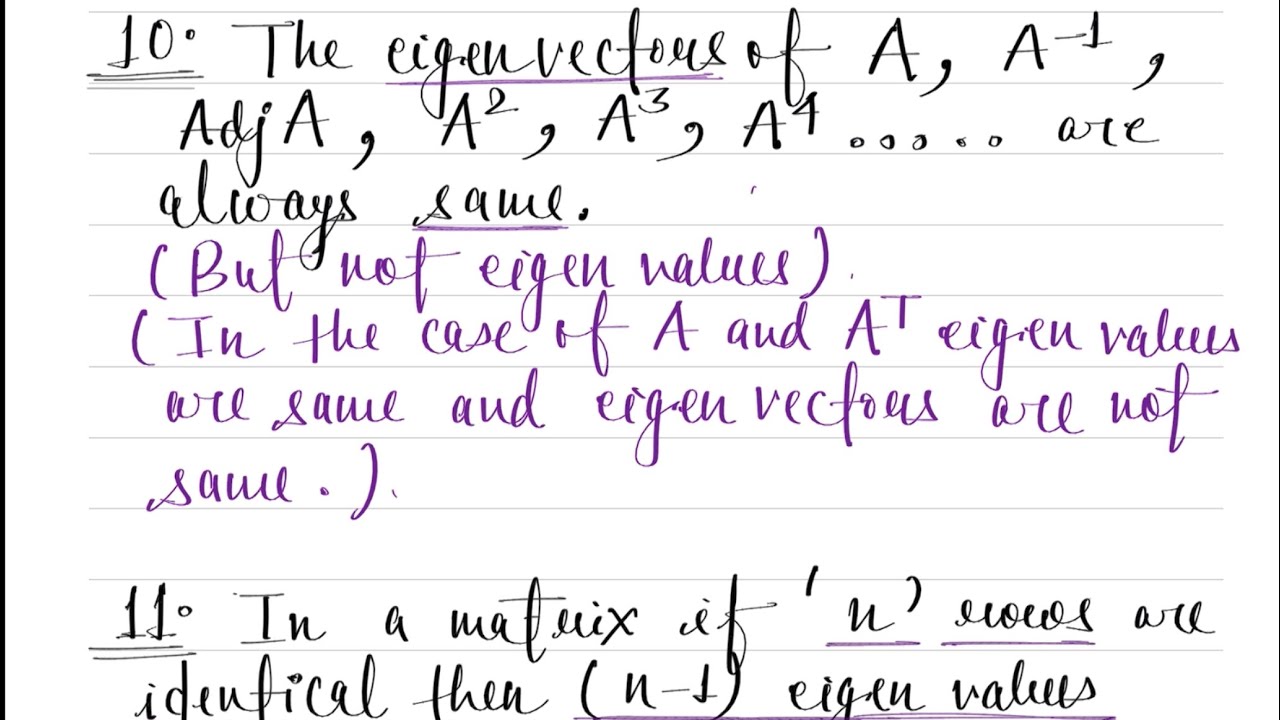 10. The eigen vectors of A, A⁻¹,
Adj A, A², A³, A⁴ ...... are
always same.
(But not eigen values).
(In the case of A and Aᵀ eigen values
are same and eigen vectors are not
same.).
11. In a matrix if 'n' rows are
identical then (n-1) eigen values